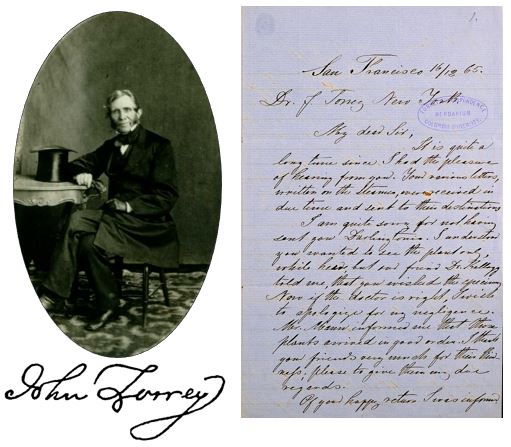 John Torrey
1.
San Francisco 16/12 65.
Dr. J. Torrey New York.
HERBARIUM
My dear Sir,
It is quite a
long time since I had the pleasure
of hearing from you. Your various letters,
written on the Steamer, were received in
due time and sent to their destinations
I am quite sorry for not having
sent you Darlingtonia. I understood
you wanted to see the plant only
while here, but our friend Dr. Kellogg
told me, that you wished the specimens
Now if the doctor is right, I wish
to apologize for my negligence.
Mr. Mann informed me that those
plants arrived in good order. I thank
you friends very much for their kind
ness, please to give them my due
regards.
Of your happy return I was informed